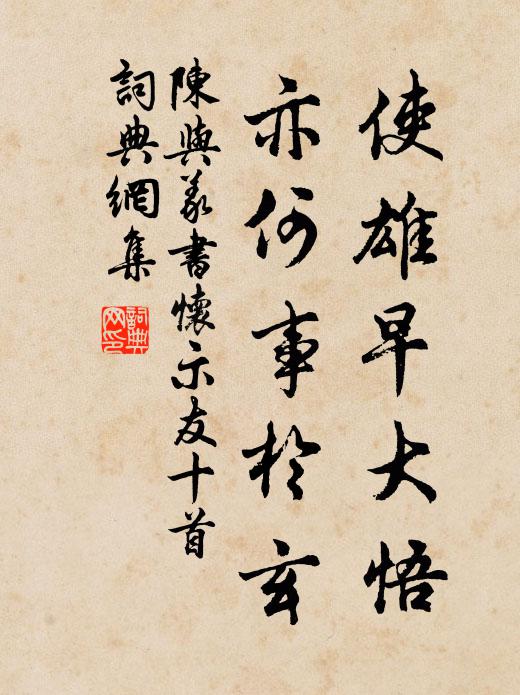 使雄早大悟
亦何事於玄
陳與義書懷示友十首
詞典網集
詞典网印